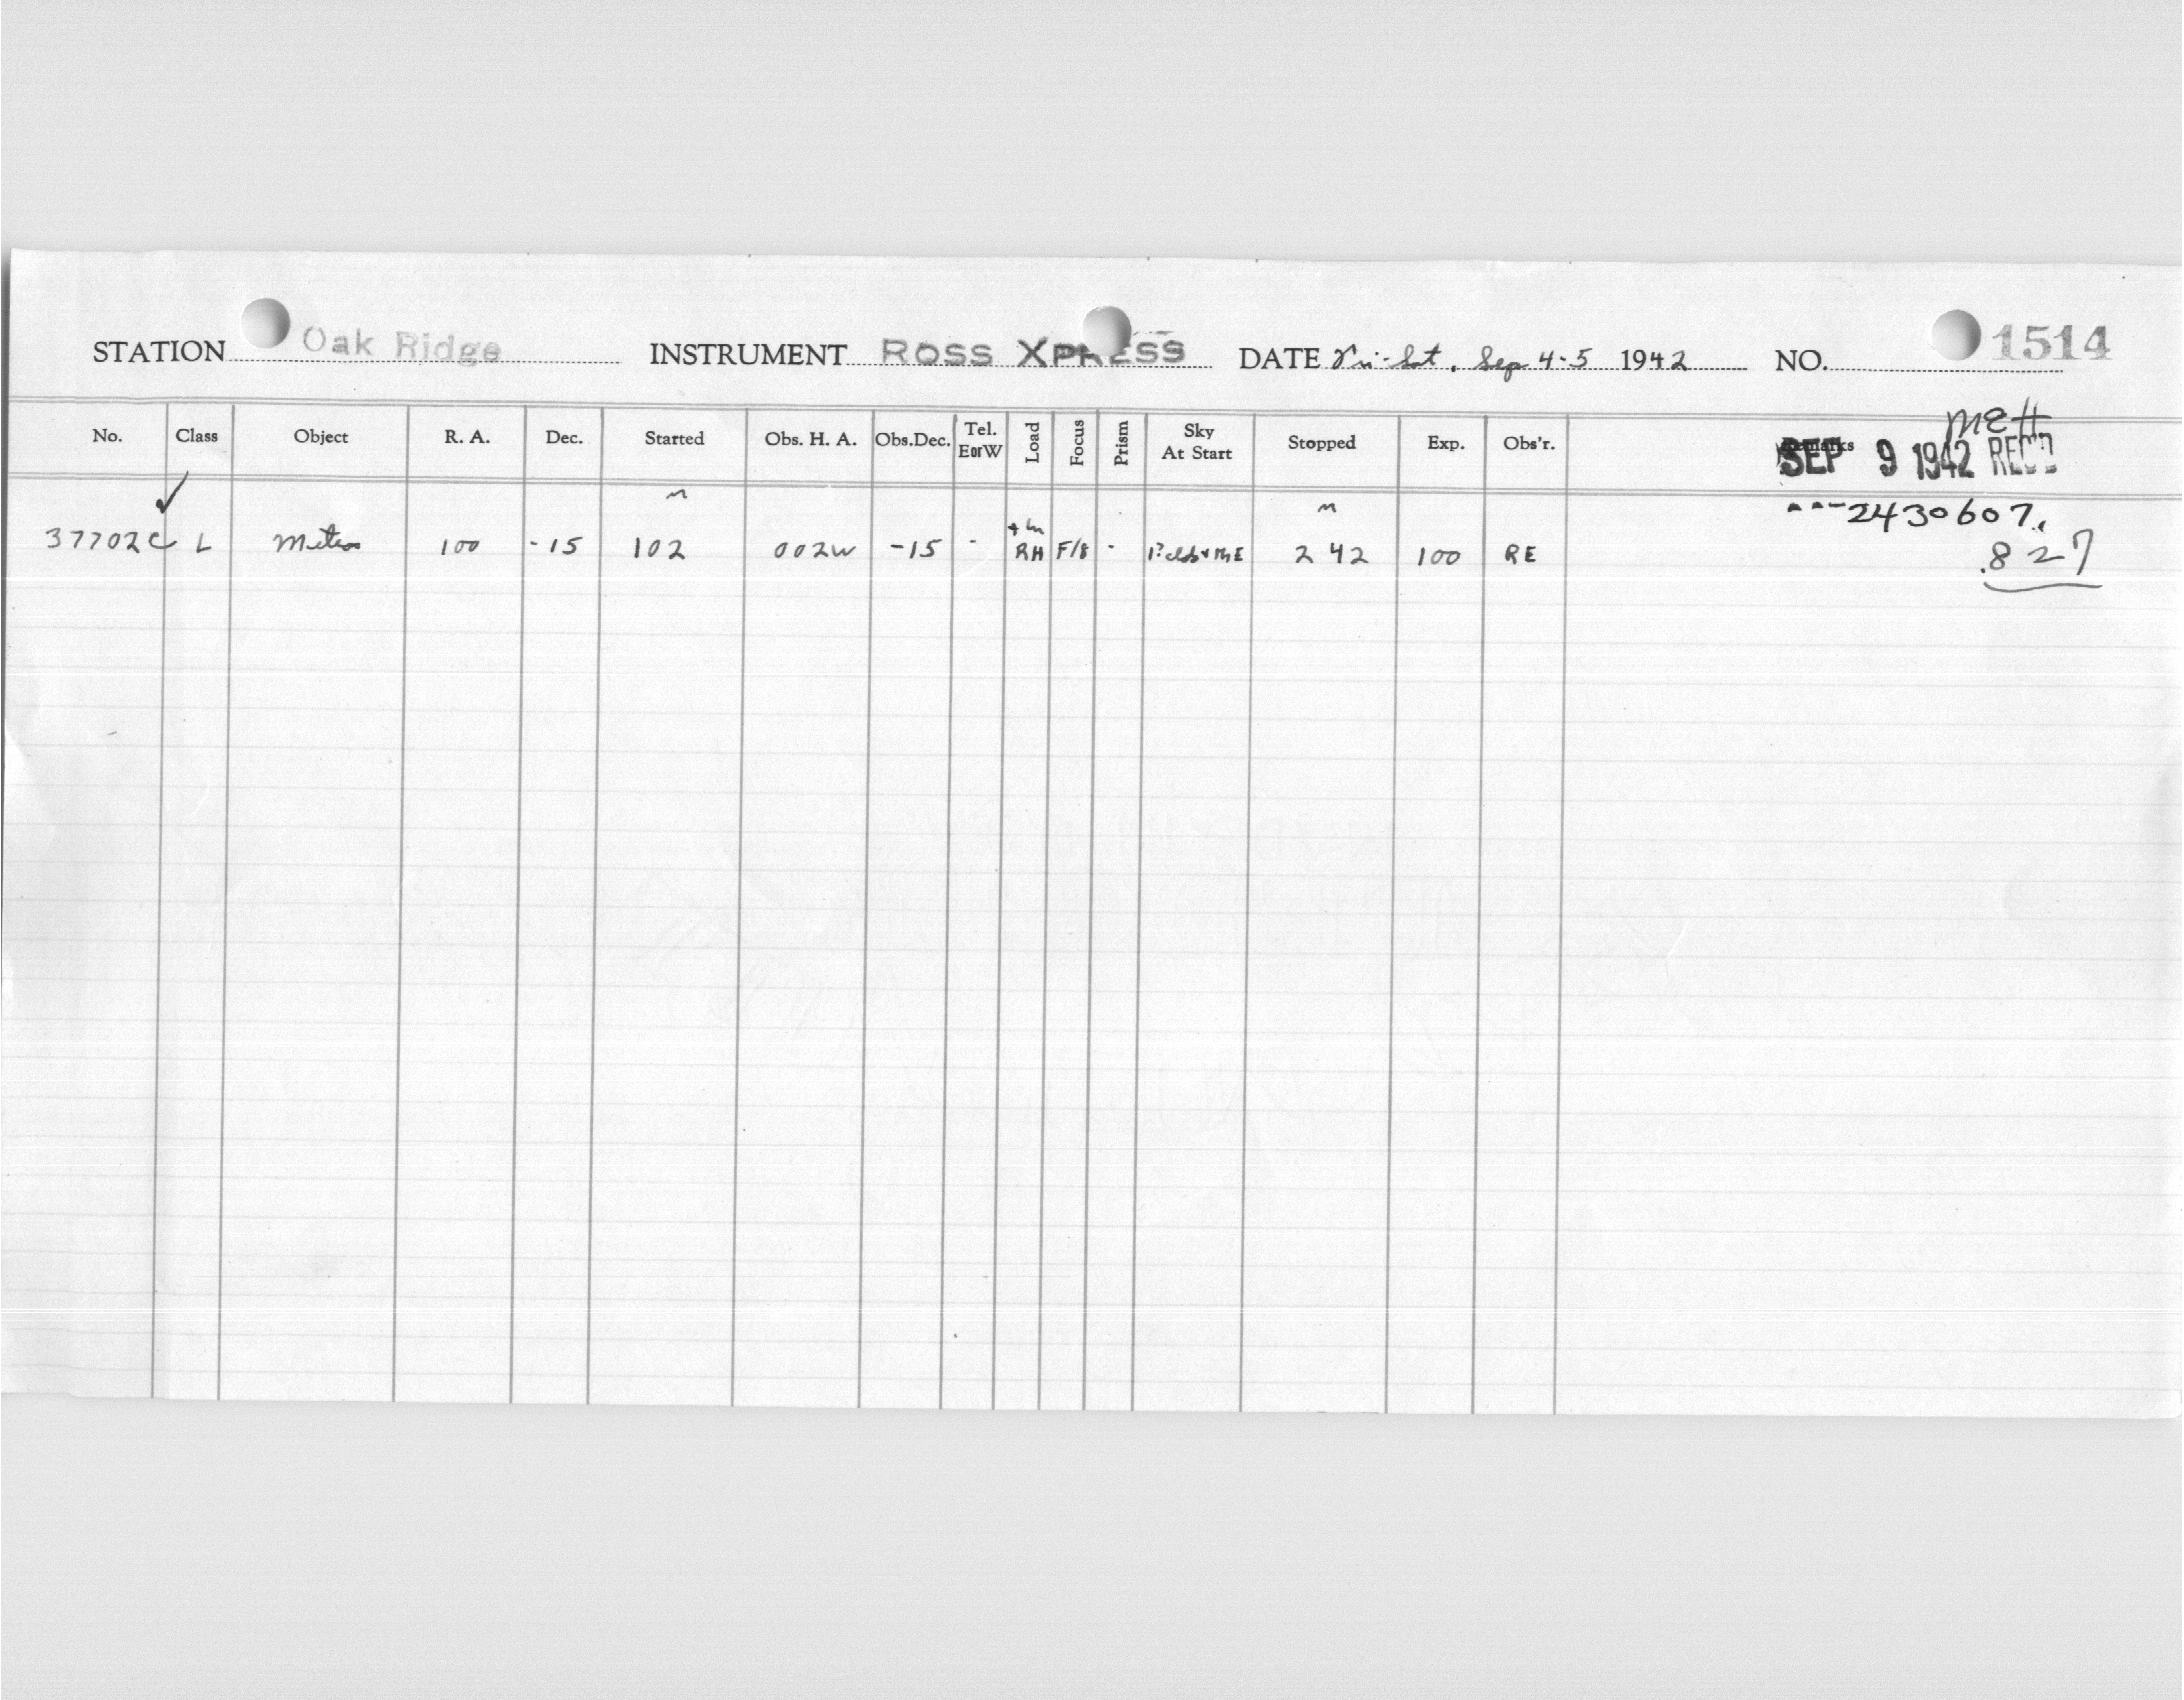 STATION Oak Ridge INSTRUMENT ROSS XPRESS DATE Fri-Sat, Sep 4-5 1942 NO. 1514
MEH
No. Class Object R. A. Dec. Started Obs. H. A. Obs.Dec. Tel. EorW Load Focus Prism Sky At Start Stopped Exp. Obs'r. Remarks
SEP 9 1942 REC'D
✓ m m 2430607.
37702C L Meteos 100 -15 102 002W -15 - RH F/8 - 242 100 RE .827